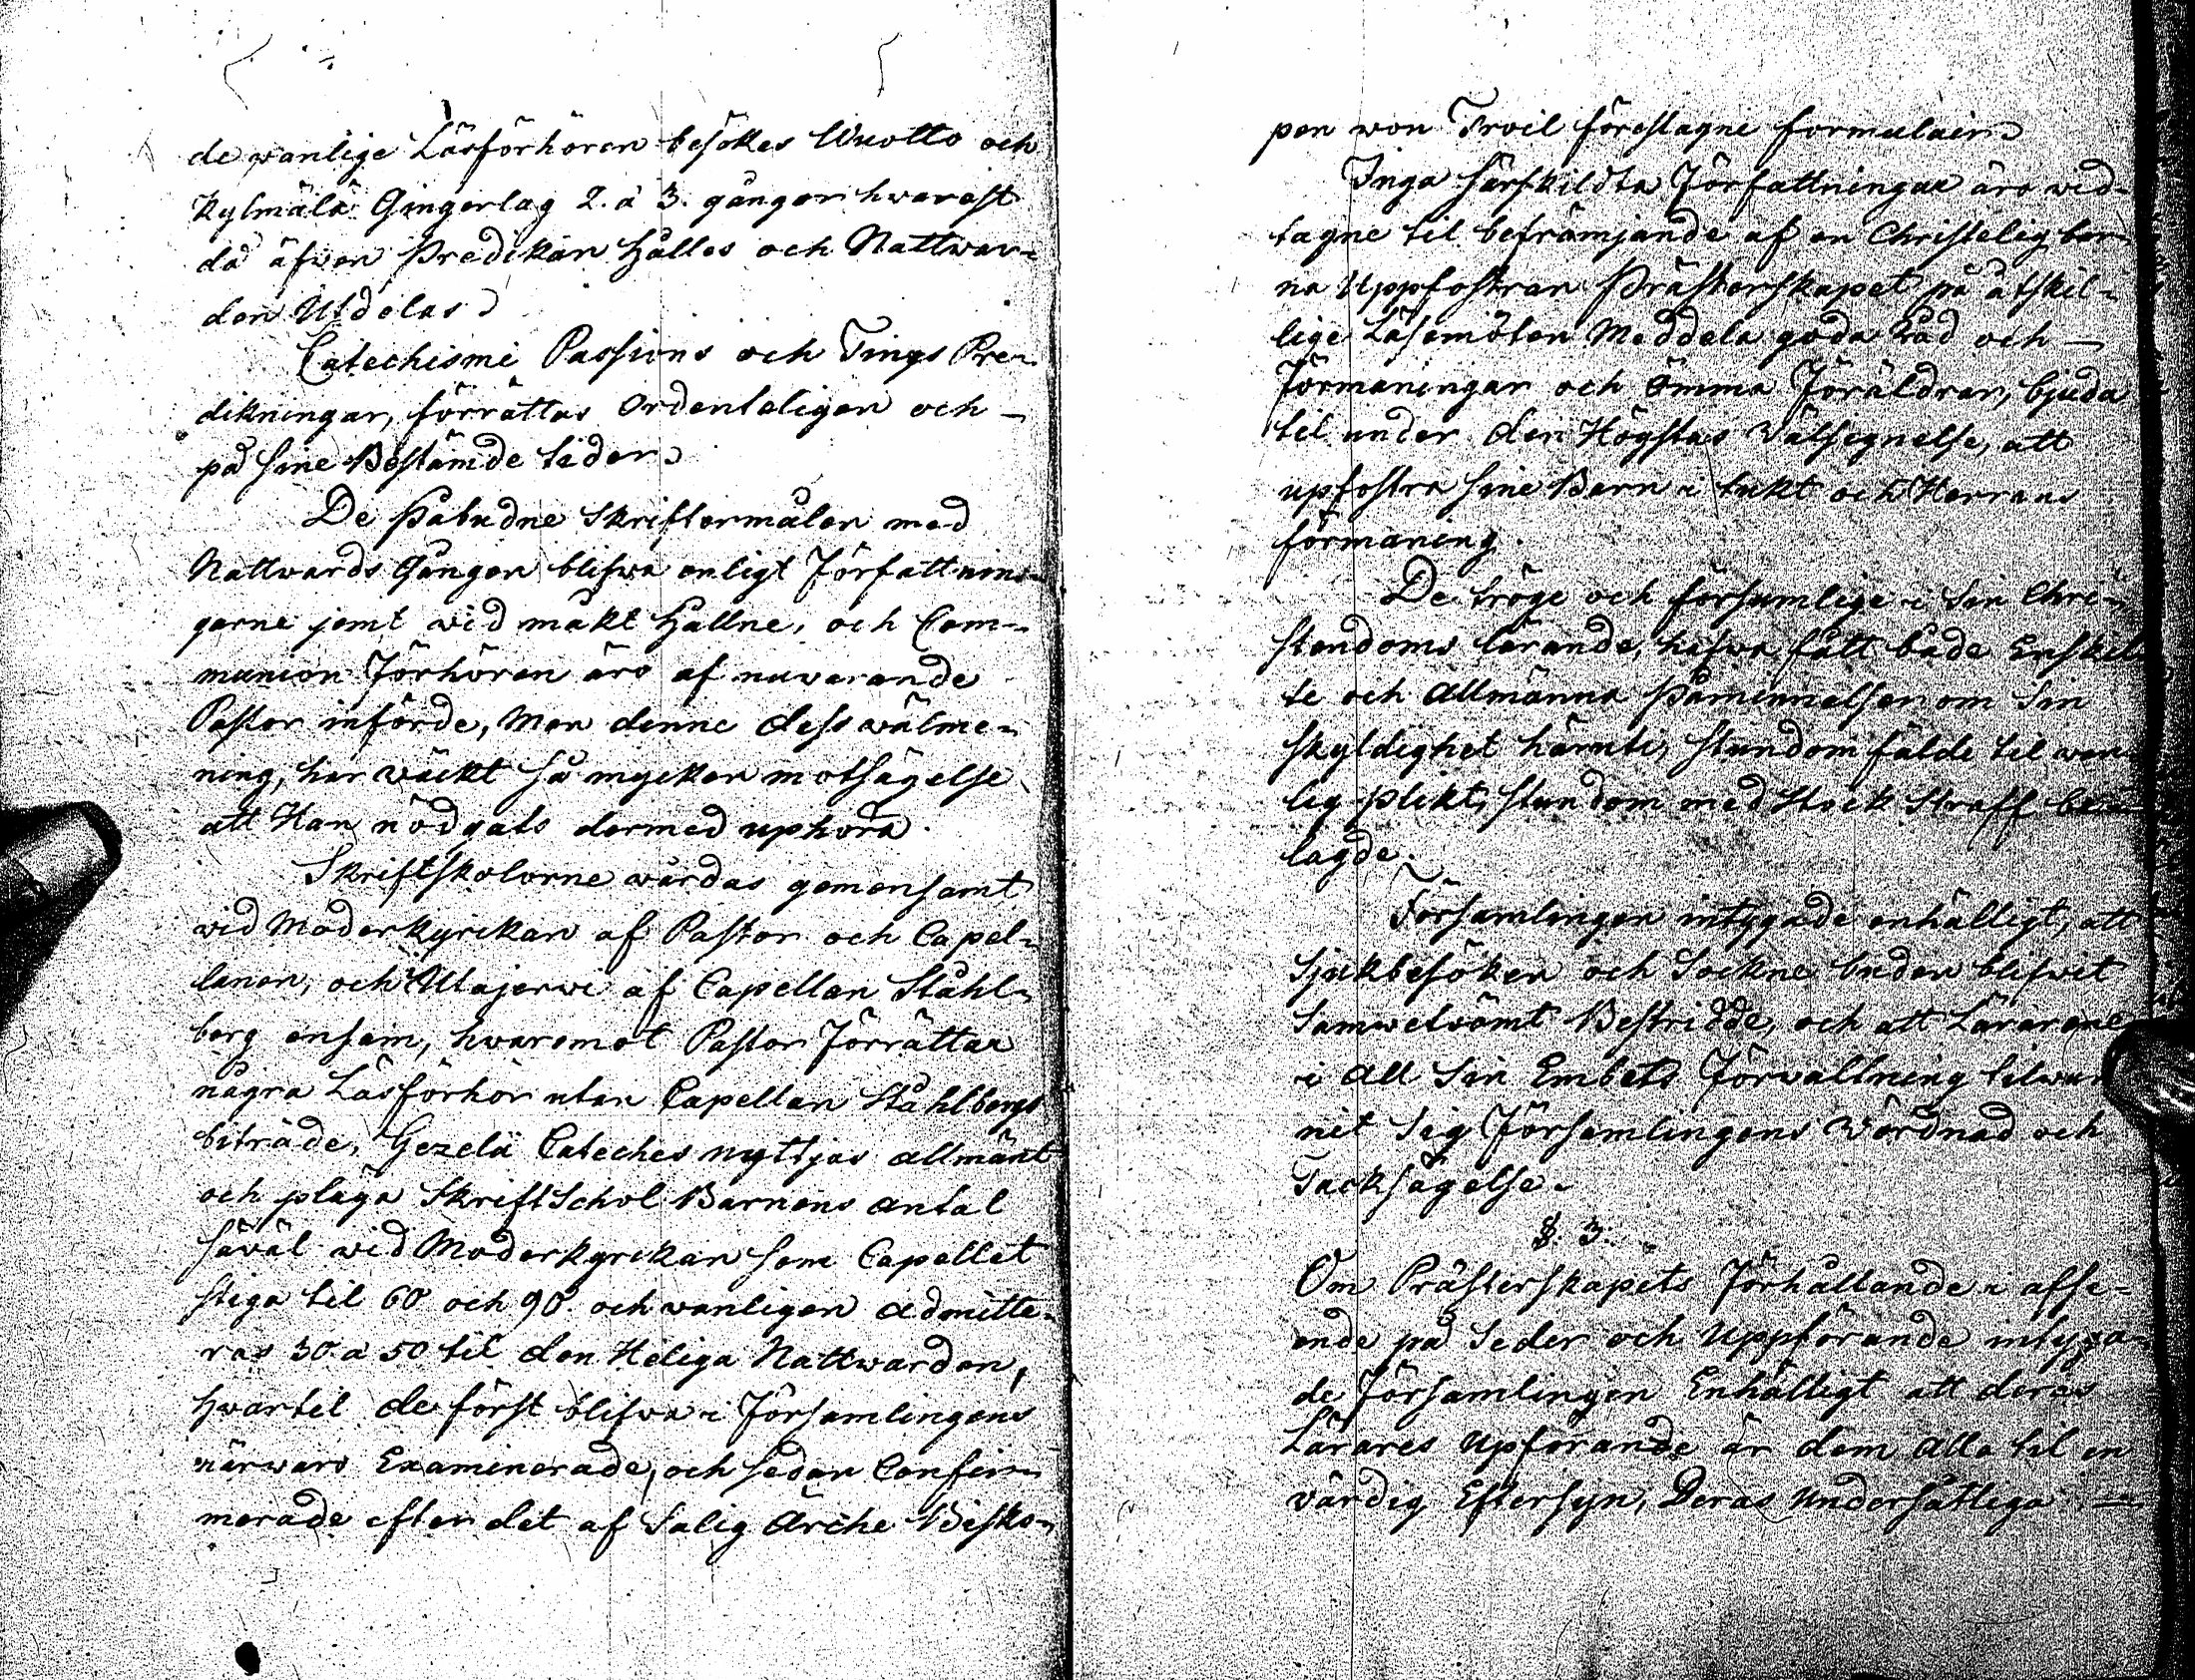 de wanlige Läsförhören besökes Wuotto och
Kylmälä Gingerlag 2. à 3. gånger hwarest
då äfwen Predikan hålles och Nattwar-
den Utdelas
Catechismi Passions och Tings Pre-
dikningar, förrättas Ordenteligen och
på sine Bestämde tider
De Påbudne Skriftermålen med
Nattwards Gången blifwa enligt Författnin-
garne jemt wid makt hållne, och Com-
munion Förhören äro af nuvarande
Pastor införde, Men denne dess wälme-
ning, har wäckt så mycken motsägelse
att Han nödgats dermed uphöra.
Skriftskolorne wårdas gemensamt
wid Moderkyrckan af Pastor och Capel-
lanen, och i Utajerwi af Capellan Ståhl-
berg ensam, hwaremot Pastor Förrättar
några Läsförhör utan Capellan Ståhlbergs
biträde, Gezelii Cateches nyttjas allmänt
och pläga SkriftSchol Barnens antal
såväl wid Moderkyrckan som Capellet
stiga til 60 och 90. och wanligen admitte-
ras 30 à 50 til den Heliga Nattwarden,
hwartil de först blifwa i Församlingens
närwaro Examinerade, och sedan Confir-
merade efter det af Salig Arche Bisko-
pen von Troil föreslagne formulair
Inga särskildta Författningar äro wid-
tagne til befrämjande af en Christelig bar-
na Uppfostran Prästerskapet på åtskil-
lige Läsemöten Meddela goda Råd och
Förmaningar och Ömma Föräldrar, bjuda
til under den Högstas Wälsignelse, att
upfostra sine Barn i tukt och Herrans
förmaning.
De tröge och försumlige i Sin Chri-
stendoms lärande, hafwa fått både Enskil-
te och Allmänna Påminnelser om Sin
skyldighet häruti, stundom fälde til wan-
lig plikt, stundom med Stock Straff be-
lagde.
Församlingen intygade enhälligt, att
Sjukbesöken och Sockne buden blifwit
Samwetsömt Bestridde, och att Lärarene
i All Sin Embets Förvaltning tilwun
nit Sig Församlingens Wördnad och
Tacksägelse.
§. 3.
Om Prästerskapets Förhållande i afse-
ende på Seder och Uppförande intyga-
de Församlingen Enhälligt att deras
Lärares Upförande är dem Alla til en
värdig Eftersyn, Deras Undersåtliga